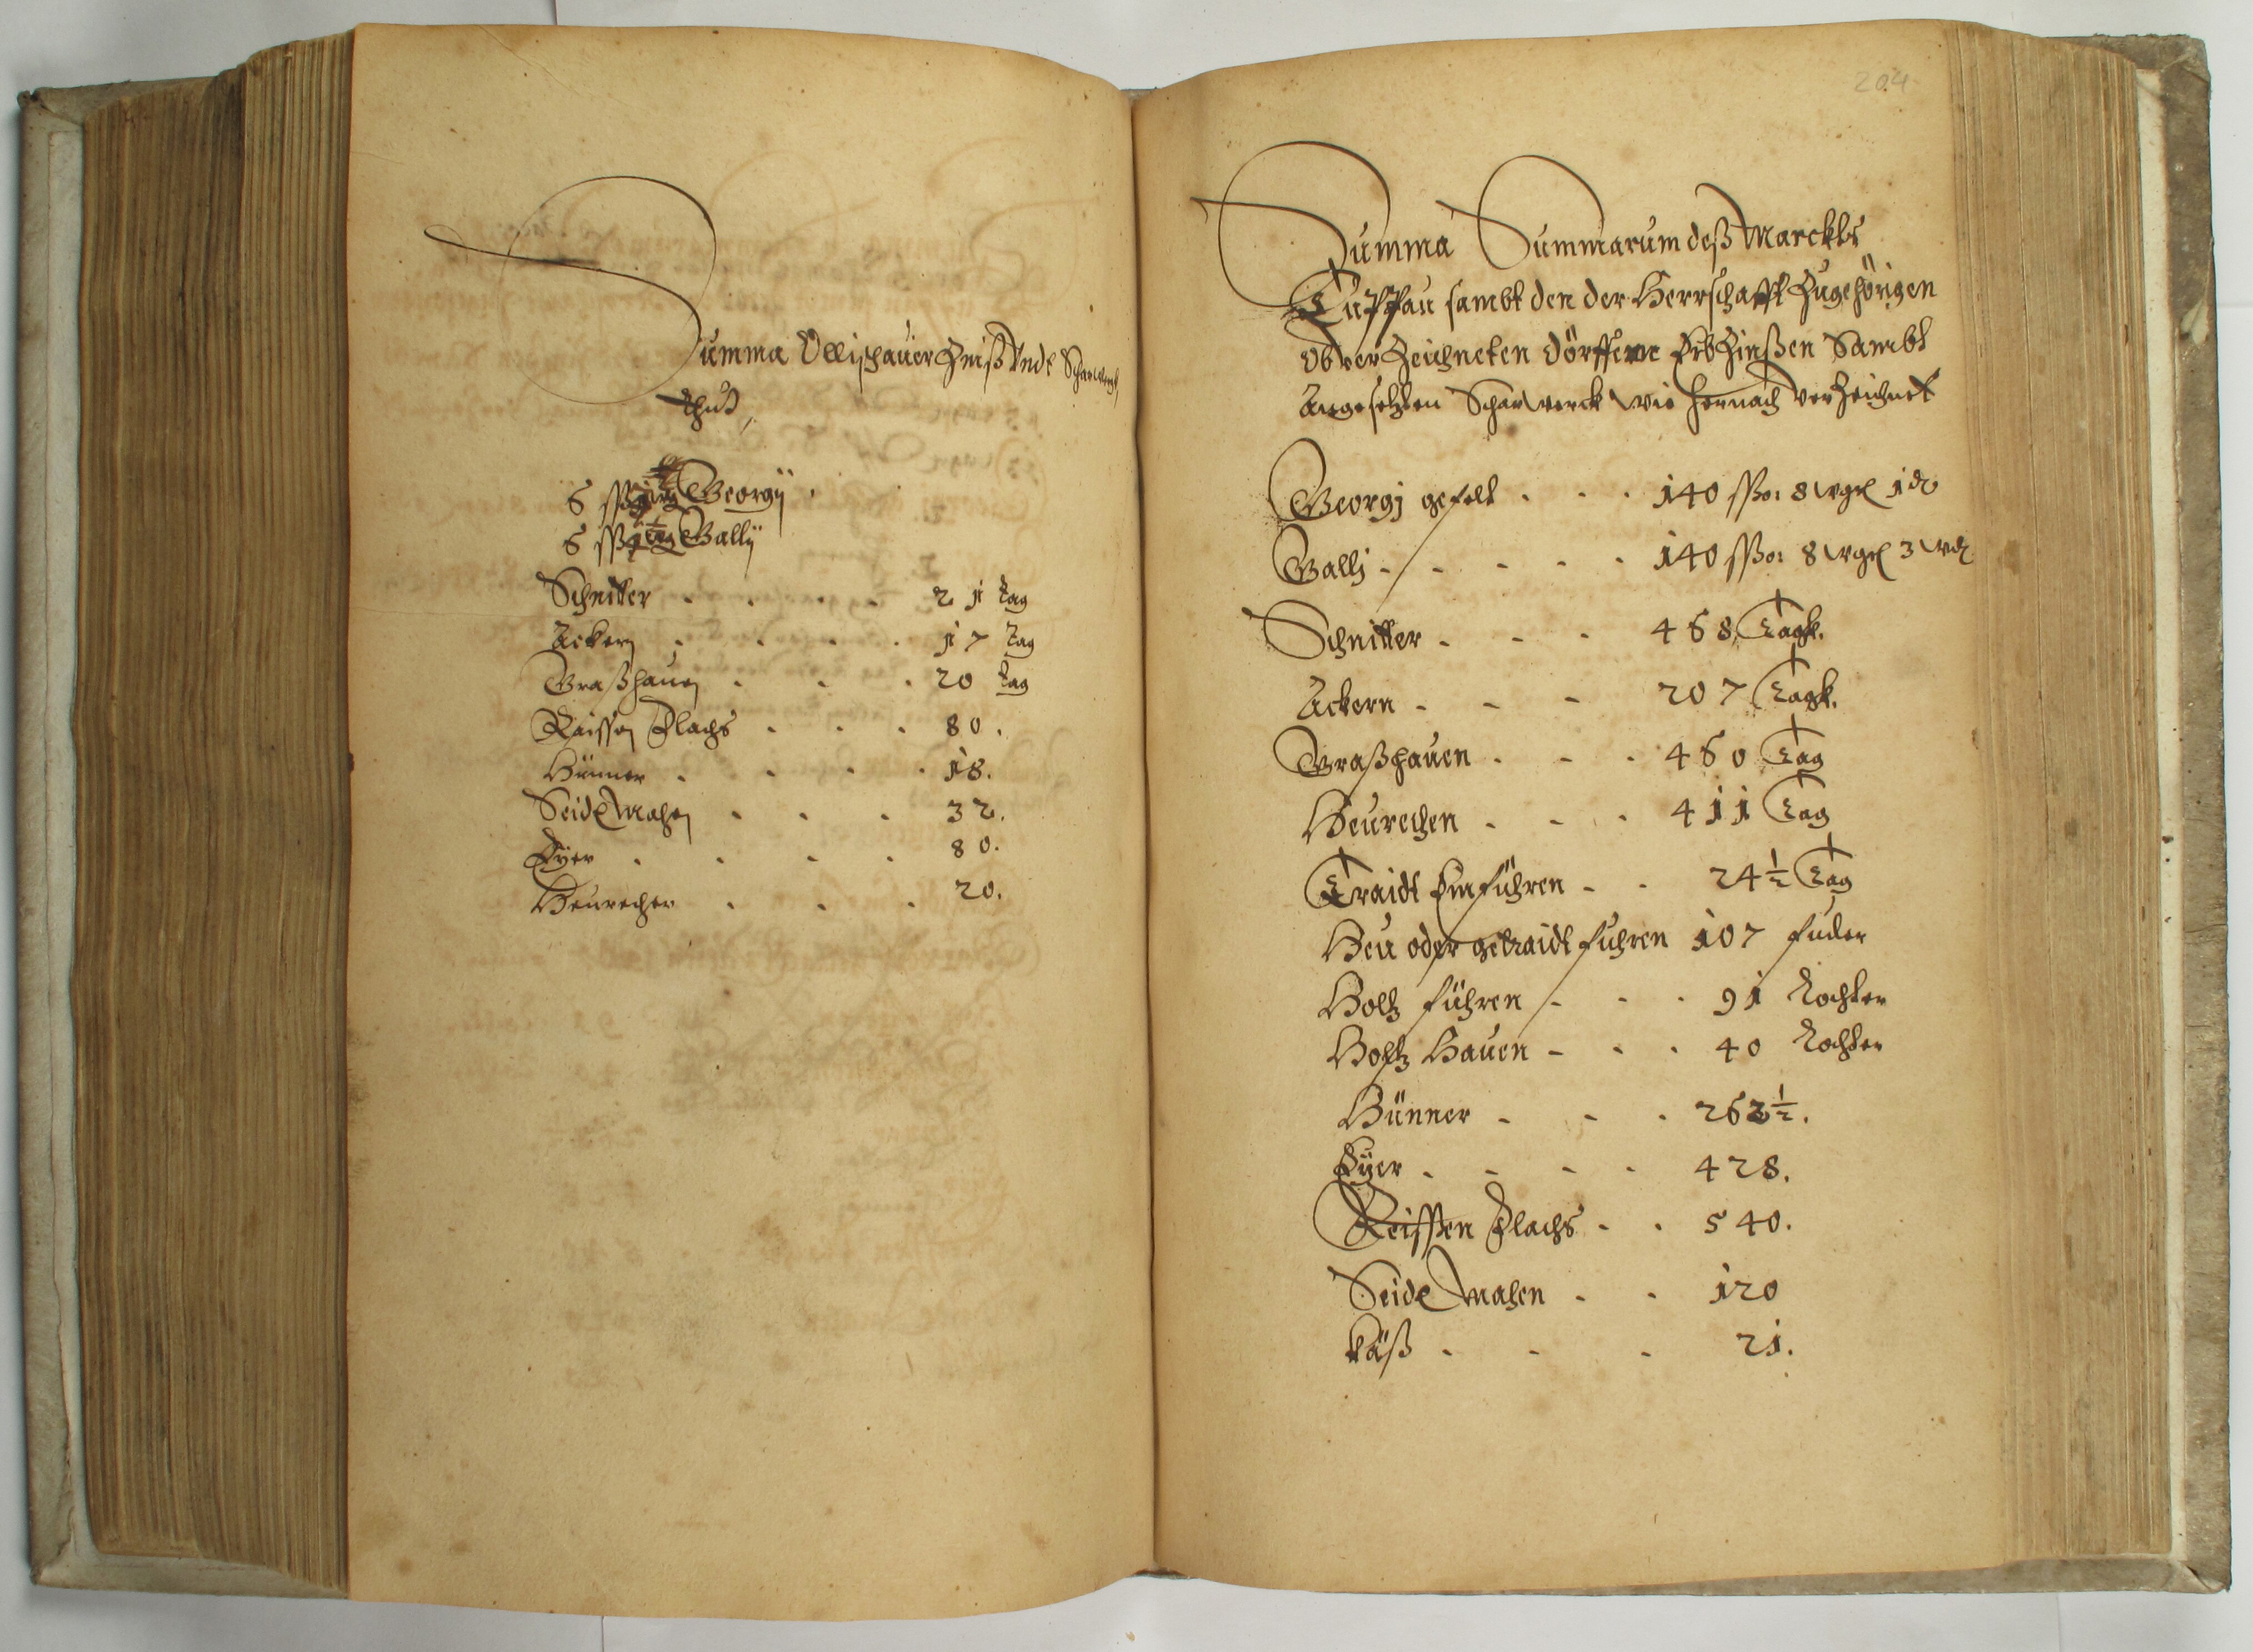 Summa Ollischauer Zinß Vndt Scharwerch,
thuet,
6 ßo Georgij
6 ßo Gallij
Schnitter . . . . 21 tag
Ackern . . . . 17 tag
Graßhauen . . . 20 tag
Raissen Flachs . . . 80.
Hünner . . . . 18.
Seidl Mahen . . . 32.
Eÿer . . . . 80.
Heurecher . . . 20.
204
Summa Summarum deß Marckts
Tuppau sambt den der Herrschafft Zugehörigen
obverZeichneten dörffern ErbZinßen Sambt
Angesetzten Scharwerck wie hernach VerZeichnet
Georgj gefelt . . . 140 ßo: 8 wgr 1 d
Gallj - - - . . 140 ßo: 8 wgr 3 wd
Schnitter . - . 468 Tagk.
Ackern - - - 207 Tagk.
Graßhauen . - . 460 Tag
Heurechen . - . 411 Tag
Traidt Einführen - . 24½ Tag
Heu oder getraidt führen 107 fuder
Holtz führen - - . 91 Klachter
Holtz Hauen - . . 40 Klachter
Hünner - - . 262½.
Eÿer . - - . 428.
Reissen Flachs . . 540.
Seidl Mahen . . 120
Käß . - . 21.